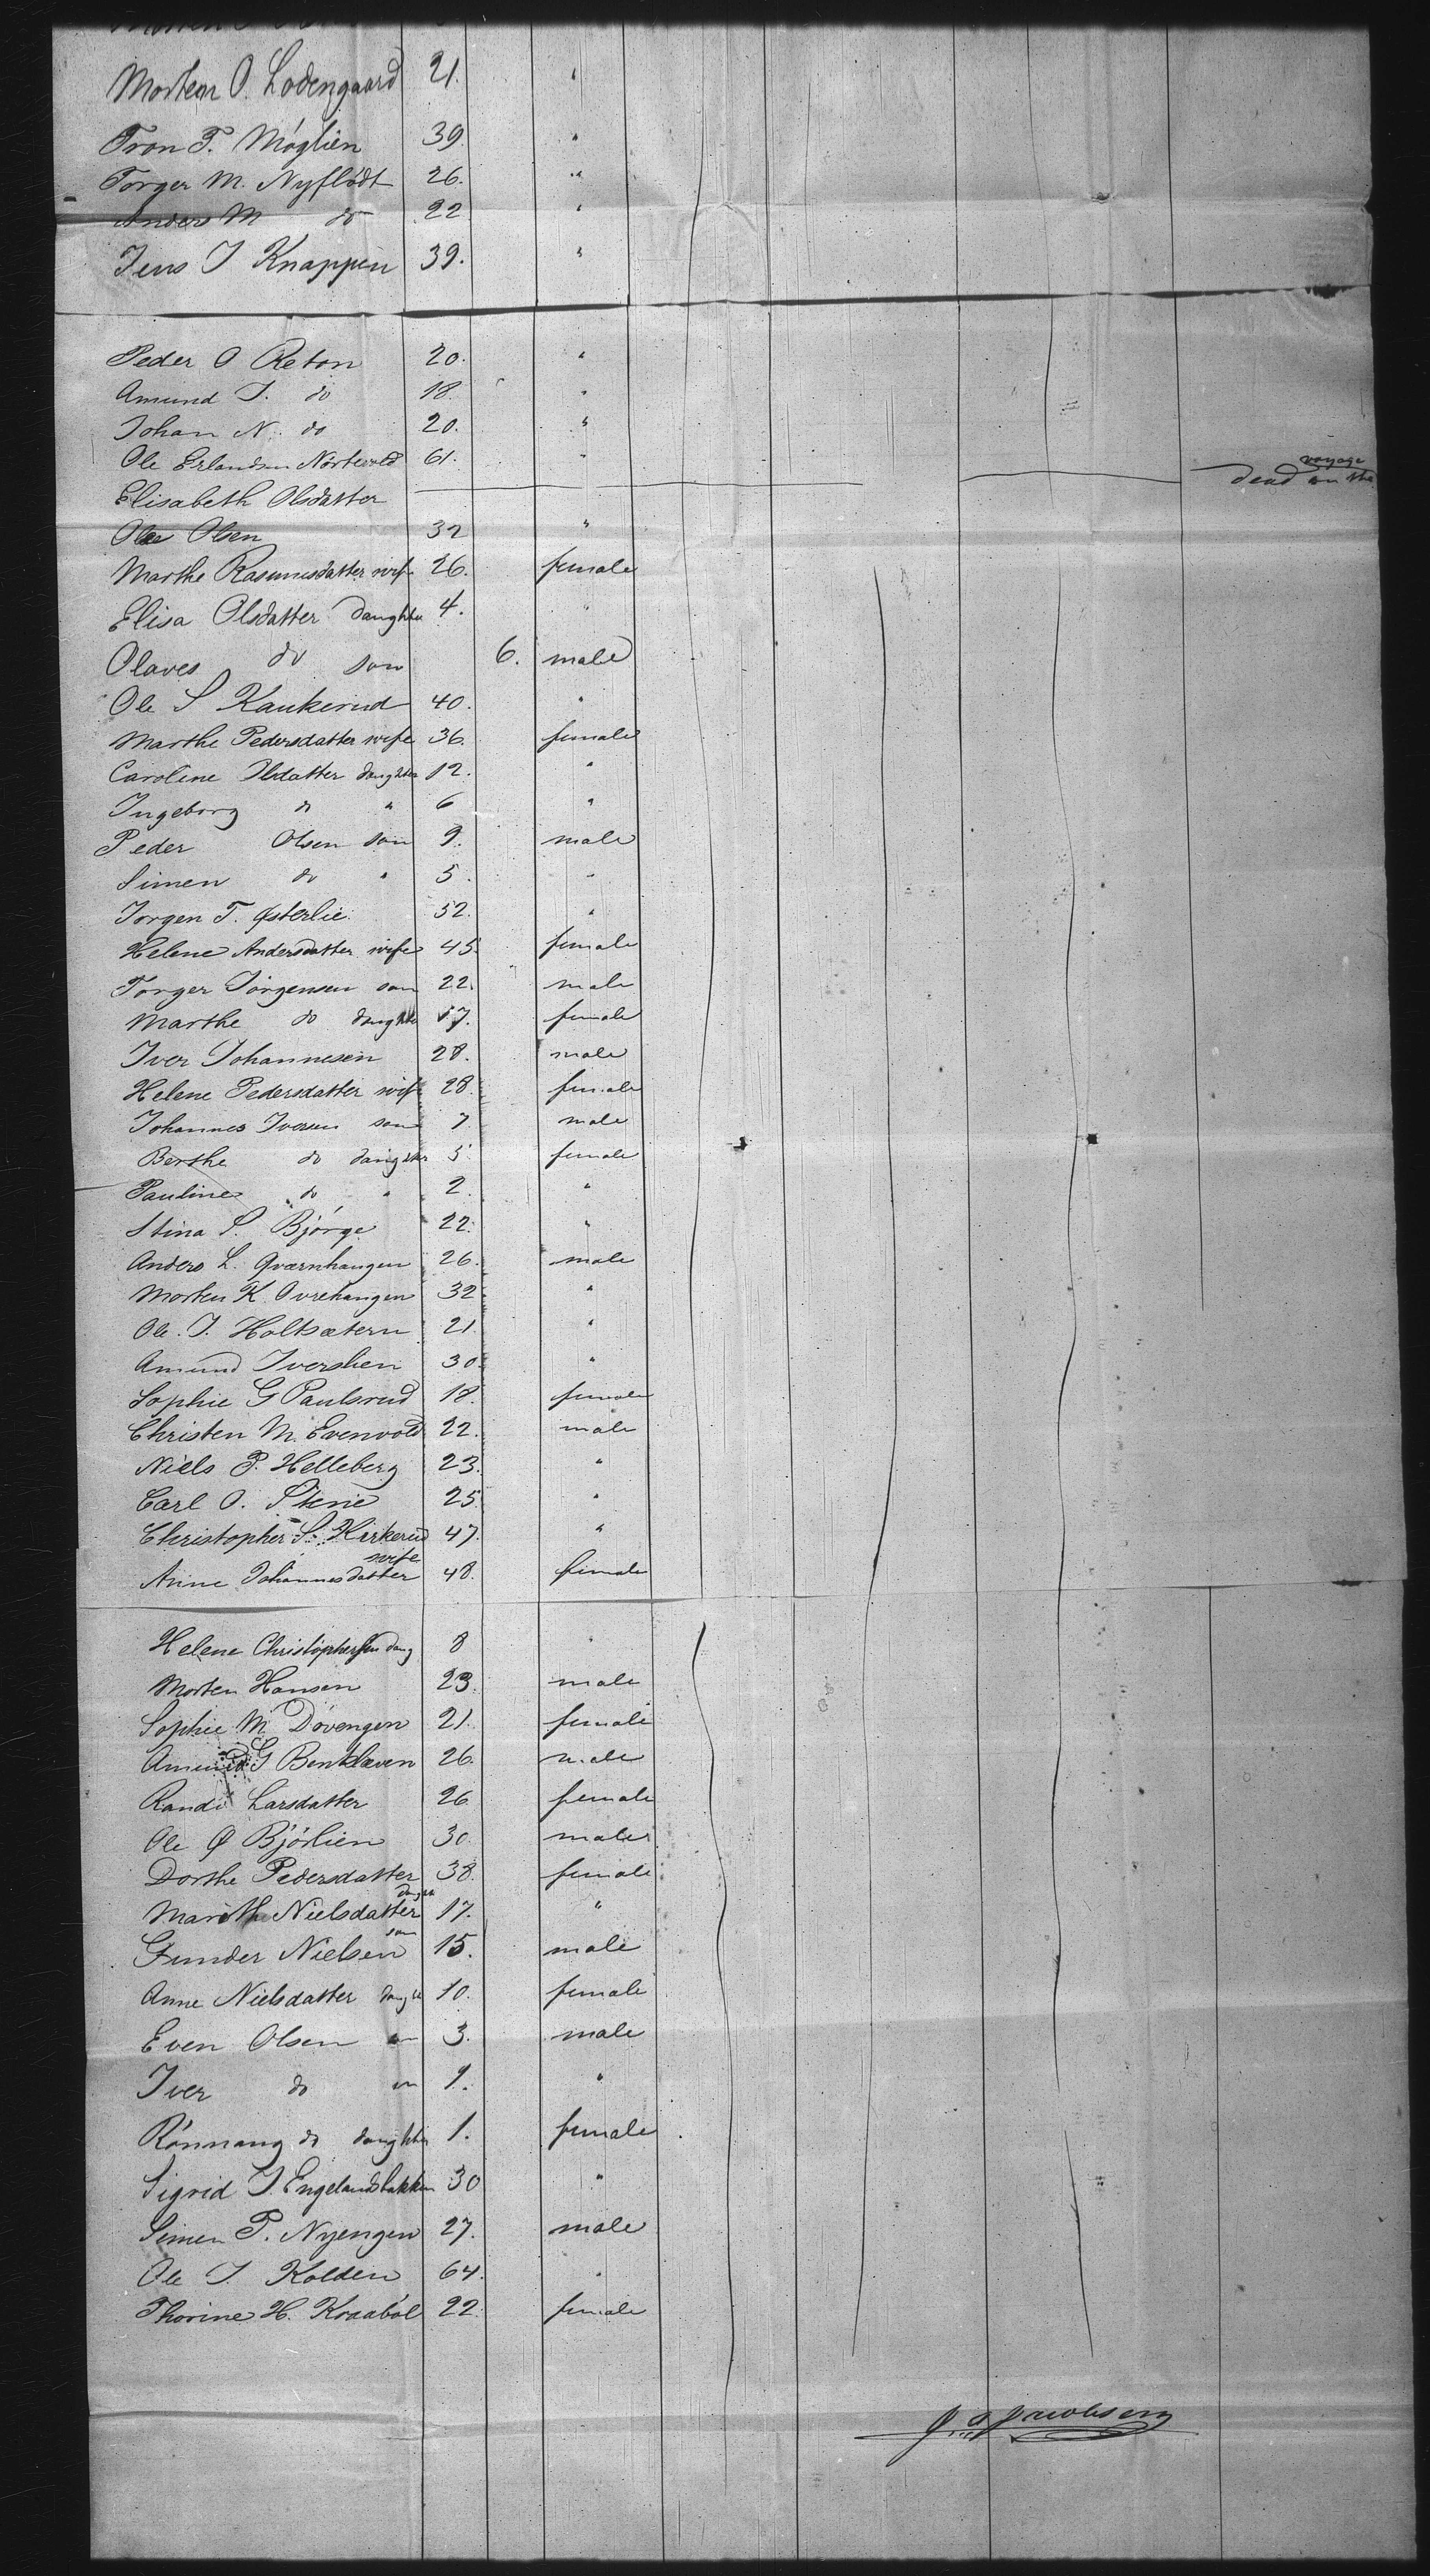 Morten O. Lodengaard 21. "
Tron T. Møglien 39. "
Torger M. Nyflödt 26. "
Anders M do 22 "
Jens J Knappen 39. "
Peder O Reton 20. "
Amund J. do 18. "
Johan N. do 20. "
Ole Erlandsen Nörtevold 61. "
voyage
Elisabeth Olsdatter dead on the
Ole Olsen 32 "
Marthe Rasmusdatter wife 26. female
Elisa Olsdatter daughter 4. "
Olaves do son 6. male
Ole S Kaukerud 40. "
Marthe Pedersdatter wife 36. female
Caroline Olsdatter daughter 12. "
Ingeborg do " 6 "
Peder Olsen son 9. male
Simen do " 5. "
Jorgen T. Østerlie 52. "
Helene Andersdatter wife 45. female
Torger Jörgensen son 22. male
Marthe do daughter 17. female
Iver Johannesen 28. male
Helene Pedersdatter wife 28. female
Johannes Iversen son 7. male
Berthe do daughter 5. female
Pauline do " 2. "
Stina S. Bjørge 22. "
Anders L. Qværnhaugen 26. male
Morten K. Ovrehaugen 32 "
Ole. J. Holtsætern 21. "
Amund Iverslien 30. "
Sophie G Paulsrud 18. female
Christen M. Evenvold 22. male
Niels P. Helleberg 23. "
Carl O. Stene 25. "
Christopher S. Hirkerud 47. "
wife
Anne Johannesdatter 48. female
Helene Christophersen daug 8 "
Morten Hansen 23. male
Sophie M Dövengen 21. female
Amund G Benklæven 26. male
Randi Larsdatter 26 female
Ole Ø Bjørlien 30. male
Dorthe Pedersdatter 38. female
daugh
Marith Nielsdatter 17. "
son
Gunder Nielsen 15. male
Anne Nielsdatter daugh 10. female
Even Olsen son 3. male
Iver do son 1. "
Rönnaug do daughter 1. female
Sigrid J. Engelandsbakken 30 "
Simen P. Nyengen 27. male
Ole J. Kolden 64. "
Thorine H. Kraabøl 22. female
Jacobsen